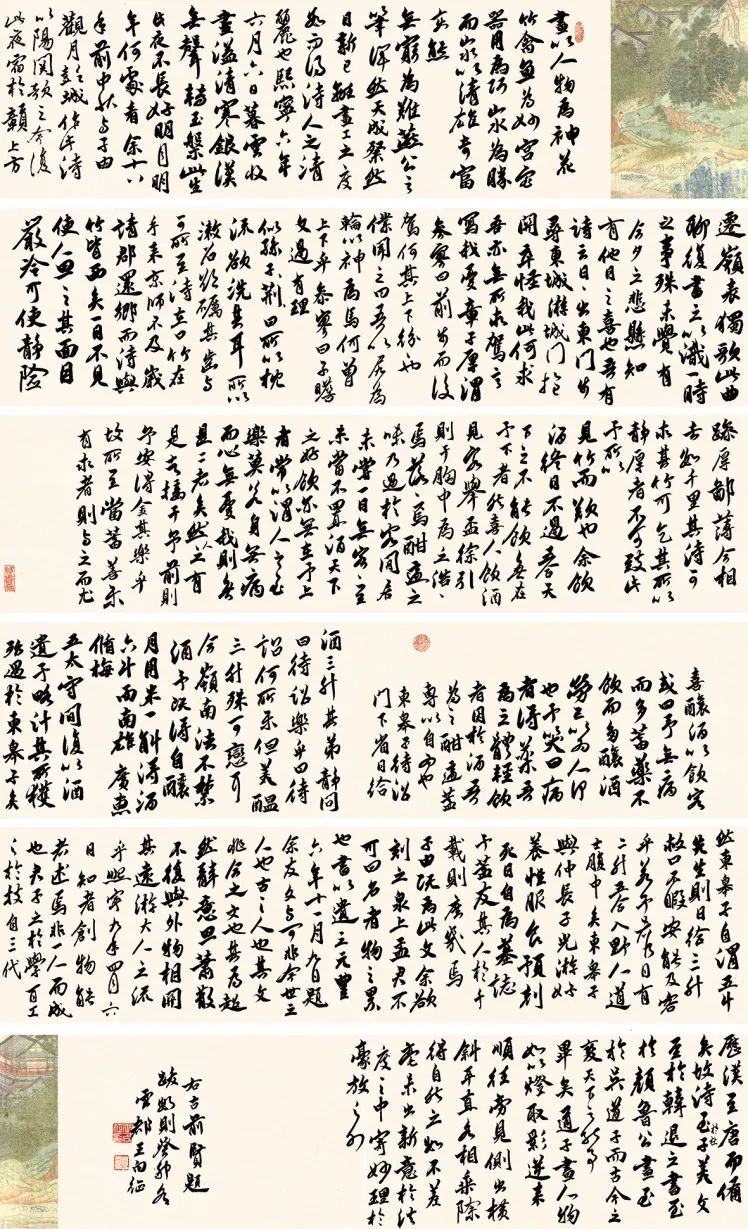 畫以人物為神花
竹禽魚為妙宮室
器用為巧山水為勝
而山水以清雄奇富
變態
無窮為難燕公之
筆渾然天成粲然
日新已離畫工之度
數而得詩人之清
麗也熙寧六年
六月六日暮雲收
盡溢清寒銀漢
無聲轉玉盤此生
此夜不長好明月明
年何處看余十八
年前中秋與子由
觀月彭城作此詩
以陽關歌之今復
此夜宿於贛上方
遷嶺表獨歌此曲
聊復書之以識一時
之事殊未覺有
今夕之悲懸知
有他日之喜也吾有
詩云日日出東門步
尋東城游城門抱
關卒怪我此何求
吾亦無所求駕言
寫我憂章子厚謂
參寥曰前步而後
駕何其上下紛紛也
僕聞之曰吾以尻為
輪以神為馬何曾
上下乎參寥曰子瞻
文過有理
似孫子荊曰所以枕
流欲洗其耳所以
漱石欲礪其齒與
可所至詩在口竹在
手來京師不及歲
請郡還鄉而詩與
竹皆西矣一日不見
使人思之其面目
嚴冷可使靜險
躁厚鄙薄今相
去數千里其詩可
求其竹可乞其所以
靜厚者不可致此
予所以
見竹而歎也余飲
酒終日不過五合天
下之不能飲無在
予下者然喜人飲酒
見客舉杯徐引
則予胸中為之浩浩
焉落落焉酣適之
味乃過於客閒居
未嘗一日無客客至
未嘗不置酒天下
之好飲亦無在予上
者常以謂人之至
樂莫若身無病
而心無憂我則無
是二者矣然人之有
是者接於予前則
予安得全其樂乎
故所至當蓄善藥
有求者則與之而尤
喜釀酒以飲客
或曰子無病
而多蓄藥不
飲而多釀酒
勞己以為人何
也予笑曰病
者得藥吾
為之體輕飲
者困於酒吾
為之酣適蓋
專以自為也
東皋子待詔
門下省日給
酒三升其弟靜問
曰待詔樂乎曰待
詔何所樂但美醞
三升殊可戀耳
今嶺南法不禁
酒予既得自釀
月用米一斛得酒
六斗而南雄廣惠
循梅
五太守間復以酒
遺予略計其所獲
殆過於東皋子矣
然東皋子自謂五斗
先生則日給三升
救口不暇安能及客
乎若予者乃日有
二升五合入野人道
士腹中矣東皋子
與仲長子光游好
養性服食預刻
死日自為墓誌
予蓋友其人於千
載則庶幾焉
子由既為此文余欲
刻之泉上孟君不
可曰名者物之累
也書以遺之元豐
六年十一月九日題
余友文與可非今世之
人也古之人也其文
非今之文也其為超
然辭意曠蕭散
不復與外物相關
其遠游大人之流
乎熙寧九年四月六
日 知者創物能
者述焉非一人而成
也君子之於學百工
之於技自三代
歷漢至唐而備
矣故詩至於子美文
至於韓退之書至
於顏魯公畫至
於吳道子而古今之
變天下之能事
畢矣道子畫人物
如以燈取影逆來
順往旁見側出橫
斜平直各相乘除
得自然之數不差
毫末出新意於法
度之中寄妙理於
豪放之外
右古前賢題
跋數則癸卯冬
雲都王向征